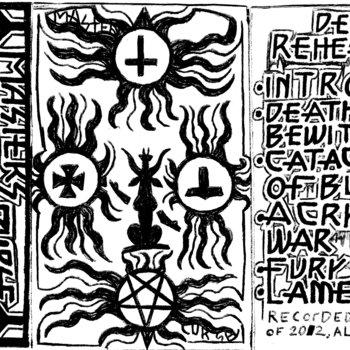 MASTER'S
MASTER
CURSE
DE
REHE
INTRO
DEATH
BEWIT
CATAC
OF BL
ACRY
WAR
FURY
LAME
RECORDED
OF 2012, AL